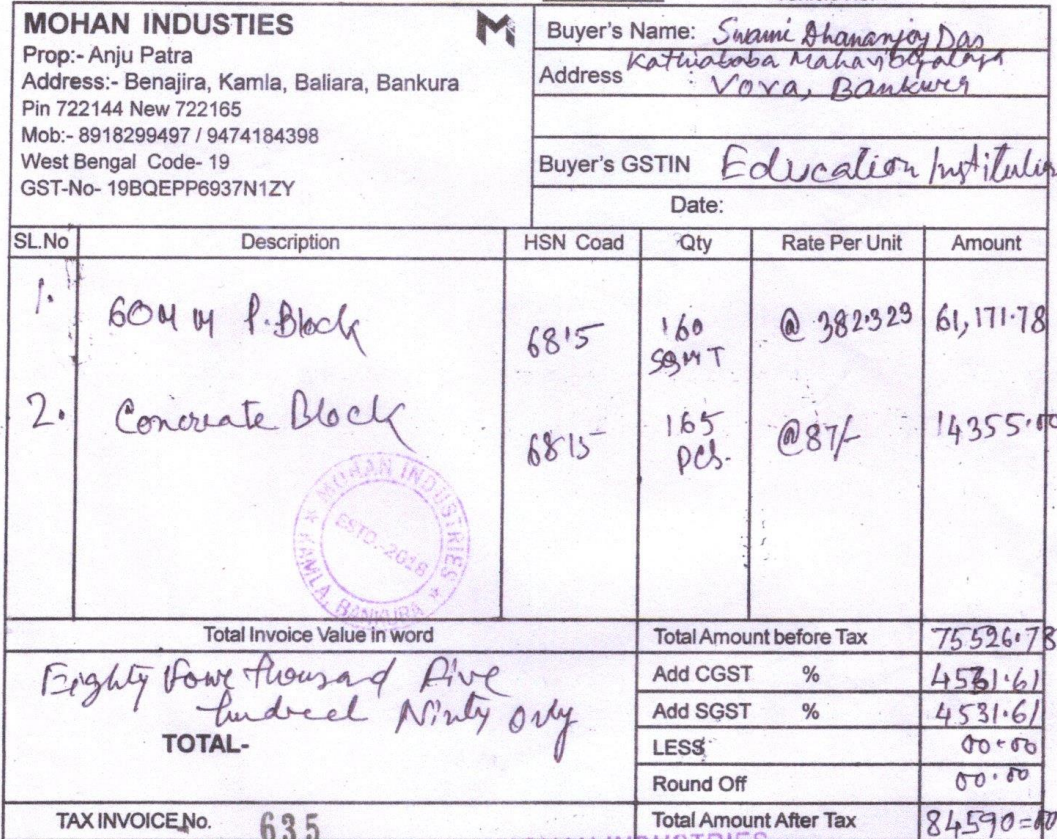 MOHAN INDUSTIES
Prop:- Anju Patra
Address:- Benajira, Kamla, Baliara, Bankura
Pin 722144 New 722165
Mob:- 8918299497 / 9474184398
West Bengal Code- 19
GST-No- 19BQEPP6937N1ZY
M
Buyer's Name: Swami Dhananjoy Das
Address Kathiababa Mahavidyalaya
Vora, Bankura
Buyer's GSTIN Education Institution
Date:
SL.No Description HSN Coad Qty Rate Per Unit Amount
1. 60 M M P. Block 6815 160 SQMT @ 382.329 61,171.78
2. Concreate Block 6815 165 PCS. @87/- 14355.00
MOHAN INDUSTRIES
ESTD-2018
KAMLA, BANKURA
Total Invoice Value in word Total Amount before Tax 75526.78
Eighty Four thousand Five Add CGST % 4531.61
hundred Ninty only Add SGST % 4531.61
TOTAL- LESS 00.00
Round Off 00.00
TAX INVOICE No. 635 Total Amount After Tax 84590=00